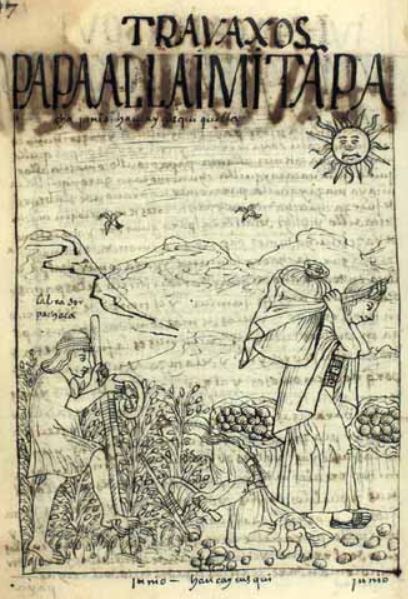 TRAVAXOS
PAPA ALLAI MITÃPA
cha junio haucay cusqui quilla
labrador
pachaca
junio – haucay cusqui
junio